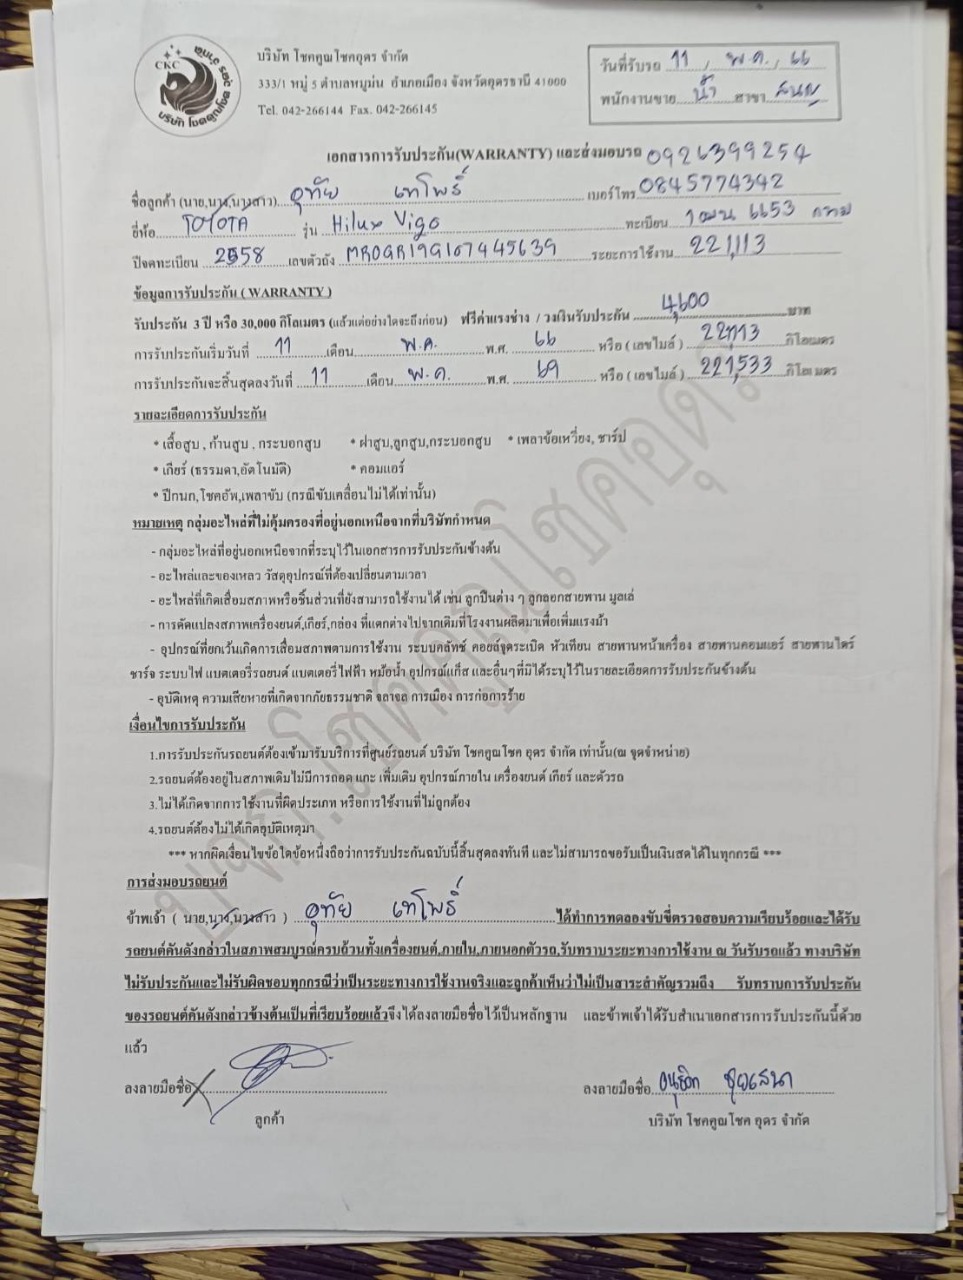 CKC
บริษัท โชคคูณโชคอุดร จำกัด
333/1 หมู่ 5 ตำบลหมูม่น อำเภอเมือง จังหวัดอุดรธานี 41000
Tel. 042-266144 Fax. 042-266145
วันที่รับรถ 11 / พ.ค. / 66
พนักงานขาย น้ำ สาขา
เอกสารการรับประกัน(WARRANTY) และส่งมอบรถ 0926399254
ชื่อลูกค้า (นาย,นาง,นางสาว) อุทัย เทโพธิ์ เบอร์โทร 0845774342
ยี่ห้อ TOYOTA รุ่น Hilux Vigo ทะเบียน 6653 กทม
ปีจดทะเบียน 2558 เลขตัวถัง MR0GR19G107445639 ระยะการใช้งาน 221,113
ข้อมูลการรับประกัน ( WARRANTY )
รับประกัน 3 ปี หรือ 30,000 กิโลเมตร (แล้วแต่อย่างใดจะถึงก่อน) ฟรีค่าแรงช่าง / วงเงินรับประกัน 4,600 บาท
การรับประกันเริ่มวันที่ 11 เดือน พ.ค. พ.ศ. 66 หรือ ( เลขไมล์ ) กิโลเมตร
การรับประกันจะสิ้นสุดลงวันที่ 11 เดือน พ.ค. พ.ศ. 69 หรือ ( เลขไมล์ ) 221,533 กิโลเมตร
รายละเอียดการรับประกัน
* เสื้อสูบ , ก้านสูบ , กระบอกสูบ * ฝาสูบ,ลูกสูบ,กระบอกสูบ * เพลาข้อเหวี่ยง, ชาร์ป
* เกียร์ (ธรรมดา,อัตโนมัติ) * คอมแอร์
* ปีกนก,โชคอัพ,เพลาขับ (กรณีขับเคลื่อนไม่ได้เท่านั้น)
หมายเหตุ กลุ่มอะไหล่ที่ไม่คุ้มครองที่อยู่นอกเหนือจากที่บริษัทกำหนด
- กลุ่มอะไหล่ที่อยู่นอกเหนือจากที่ระบุไว้ในเอกสารการรับประกันข้างต้น
- อะไหล่และของเหลว วัสดุอุปกรณ์ที่ต้องเปลี่ยนตามเวลา
- อะไหล่ที่เกิดเสื่อมสภาพหรือชิ้นส่วนที่ยังสามารถใช้งานได้ เช่น ลูกปืนต่าง ๆ ลูกลอกสายพาน มูลเล่
- การดัดแปลงสภาพเครื่องยนต์,เกียร์,กล่อง ที่แตกต่างไปจากเดิมที่โรงงานผลิตมาเพื่อเพิ่มแรงม้า
- อุปกรณ์ที่ยกเว้นเกิดการเสื่อมสภาพตามการใช้งาน ระบบคลัทช์ คอยล์จุดระเบิด หัวเทียน สายพานหน้าเครื่อง สายพานคอมแอร์ สายพานไดร์
ชาร์จ ระบบไฟ แบตเตอรี่รถยนต์ แบตเตอรี่ไฟฟ้า หม้อน้ำ อุปกรณ์แก๊ส และอื่นๆที่มิได้ระบุไว้ในรายละเอียดการรับประกันข้างต้น
- อุบัติเหตุ ความเสียหายที่เกิดจากภัยธรรมชาติ จลาจล การเมือง การก่อการร้าย
เงื่อนไขการรับประกัน
1.การรับประกันรถยนต์ต้องเข้ามารับบริการที่ศูนย์รถยนต์ บริษัท โชคคูณโชค อุดร จำกัด เท่านั้น(ณ จุดจำหน่าย)
2.รถยนต์ต้องอยู่ในสภาพเดิมไม่มีการถอด แกะ เพิ่มเติม อุปกรณ์ภายใน เครื่องยนต์ เกียร์ และตัวรถ
3.ไม่ได้เกิดจากการใช้งานที่ผิดประเภท หรือการใช้งานที่ไม่ถูกต้อง
4.รถยนต์ต้องไม่ได้เกิดอุบัติเหตุมา
*** หากผิดเงื่อนไขข้อใดข้อหนึ่งถือว่าการรับประกันฉบับนี้สิ้นสุดลงทันที และไม่สามารถขอรับเป็นเงินสดได้ในทุกกรณี ***
การส่งมอบรถยนต์
ข้าพเจ้า ( นาย,นาง,นางสาว ) อุทัย เทโพธิ์ ได้ทำการทดลองขับขี่ตรวจสอบความเรียบร้อยและได้รับ
รถยนต์คันดังกล่าวในสภาพสมบูรณ์ครบถ้วนทั้งเครื่องยนต์,ภายใน,ภายนอกตัวรถ,รับทราบระยะทางการใช้งาน ณ วันรับรถแล้ว ทางบริษัท
ไม่รับประกันและไม่รับผิดชอบทุกกรณีว่าเป็นระยะทางการใช้งานจริงและลูกค้าเห็นว่าไม่เป็นสาระสำคัญรวมถึง รับทราบการรับประกัน
ของรถยนต์คันดังกล่าวข้างต้นเป็นที่เรียบร้อยแล้วจึงได้ลงลายมือชื่อไว้เป็นหลักฐาน และข้าพเจ้าได้รับสำเนาเอกสารการรับประกันนี้ด้วย
แล้ว
ลงลายมือชื่อ ลงลายมือชื่อ
ลูกค้า บริษัท โชคคูณโชค อุดร จำกัด